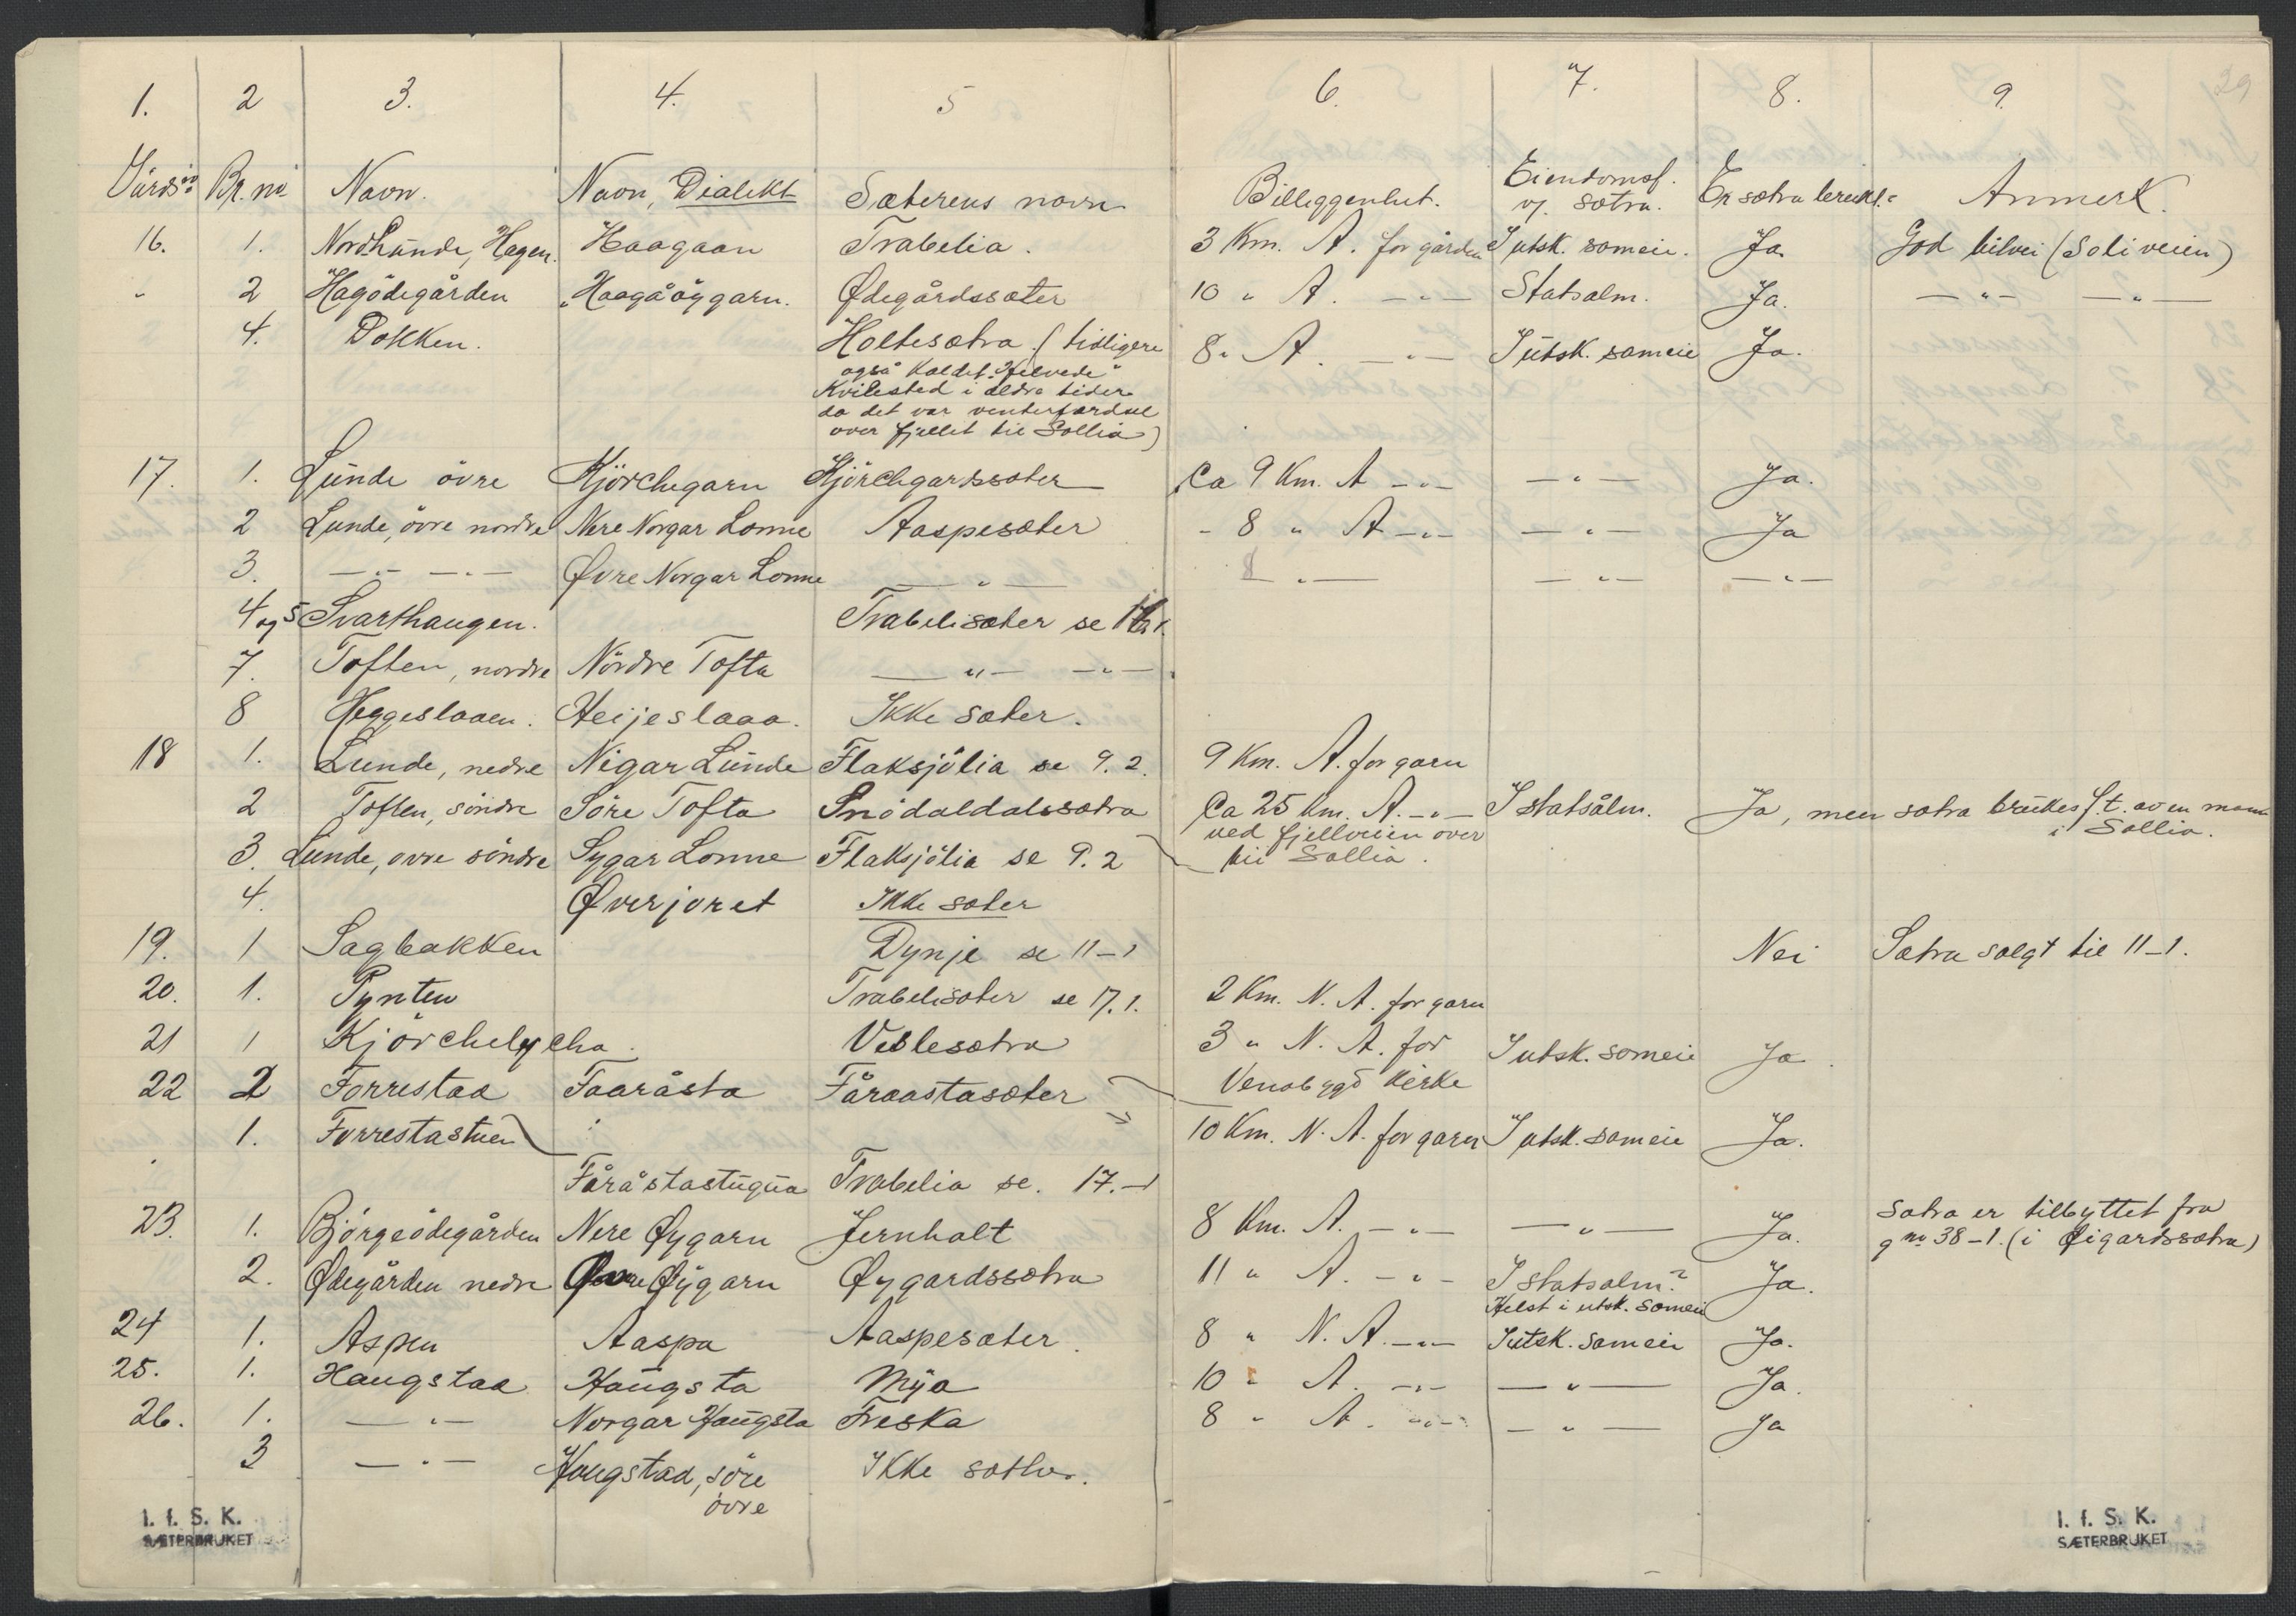 1. 2 3. 4. 5 6. 7. 8. 9. 29
Gårds no Br. no Navn. Navn, Dialekt Sæterens navn Billiggenhet. Eiendomsf. Er sætra Anmerk.
v. sætra.
16. 1. Nordhunde, Hagen. Haagaan Trabelia. 3 Km. A. for gården I utsk. someie. Ja God bilvei (Soliveien)
" 2 Hagödegården Haagåöygarn. Ødegårdssæter 10 " A. —"— Statsalm. Ja. —"— —"—
4. Dokken. Holtesætra (tidligere 8 " A. —"— I utsk. sameie Ja.
også kaldet "Helvede"
Kvilested i ældre tider
da det var venterfærdsel
over fjellet til Sollia)
17. 1. Lunde övre Kjörchegarn Kjörchgardssæter Ca 9 Km. A —"— —"— Ja.
2 Lunde, övre nordre Nere Norgar Lonne Aaspesæter - 8 " A —"— —"— Ja
3. —"— —"— Øvre Norgar Lonne —"— 8 —"— —"— —"—
4 og 5 Svarthaugen. Trabelisæter se
7. Toften, nordre Nördre Tofta —"— —"—
8 Heggeslaaen. Heijeslaaa. Ikke sæter.
18 1. Lunde, nedre Nigar Lunde Flaksjölia se 9. 2. 9 Km. A. for garn
2 Toften, söndre Söre Tofta Snödaldalssætra Ca 25 km. A. —"— I statsålm. Ja, men sætra brukes f. t. av en mann
ved fjellveien over i Sollia.
3. Lunde, övre söndre Sygar Lonne Flaksjölia se 9. 2 til Sollia.
4. Øverjoret Ikke sæter
19. 1 Sagbakken Dynje se 11-1 Nei Sætra solgt til 11-1.
20. 1. Pynten Trabelisæter se 17. 1. 2 Km. N. A. for garn
21 1 Kjörchelycha. Veslesætra 3 " N. A. for I utsk. someie Ja
Venabygd kirke
22 2 Forrestad Faaråsta Fåraastasæter 10 Km. N. A. for garn I utsk. sameie Ja.
1. Forrestastuen
Fåråstastugua Trabelia se. 17.-1
23. 1. Björgeödegården Nere Øygarn Jernhalt 8 Km. A. —"— —"— Ja. Sætra er tilbyttet fra
g no 38-1. (i Øigardssætra)
2. Ødegården nedre Øvre Øygarn Øygardssætra 11 " A. —"— I statsalm? Ja.
Helst i utsk. someie
24 1. Aspen Aaspa Aaspesæter. 8 " N. A. —"— I utsk. sameie Ja.
25. 1. Haugstad Haugsta Mya 10 " A. —"— —"— Ja.
26. 1. —"— Norgar Haugsta Freska 8 " A. —"— —"— Ja
3 —"— Haugstad, söre Ikke sæther.
övre
I. f. S. K.
SÆTERBRUKET
I. f. S. K.
SÆTERBRUKET